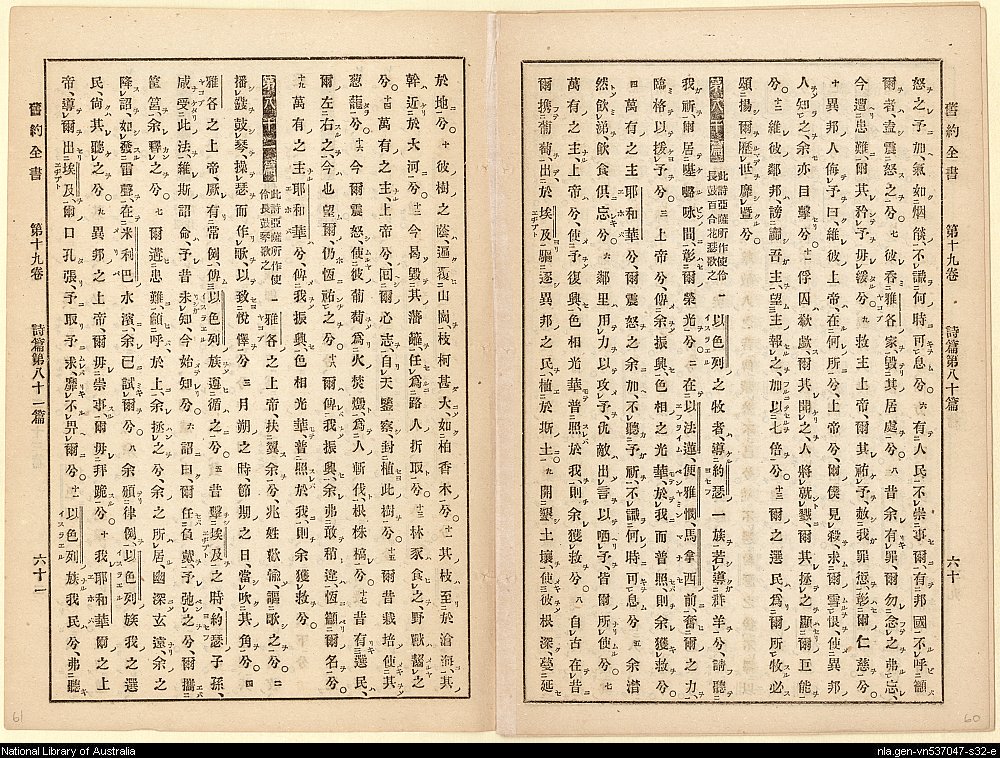 舊約全書 第十九卷 詩篇第八十篇 六十
怒之予加氣如烟燄不識何時可息兮。六有人民不崇事爾有邦國不呼籲
爾者、盍震怒之兮。七彼吞雅各家、毀其居處兮。八昔余有罪、爾勿念之、弗忘、
今遭患難、爾其矜予、毋緩兮。九救主上帝、爾其祐予、赦我罪愆、彰爾仁慈兮。
十異邦人侮予曰、維彼上帝、在何所兮、上帝兮、爾僕見殺、求爾雪恨、使異邦
人知之、余亦目擊兮。十一俘囚歎歔、爾其聞之、人將就戮、爾其拯之、顯爾巨能
兮。十二維彼鄰邦、謗讟吾主、望主報之、加以七倍兮。十三爾之選民、爲爾所牧、必
頌揚爾、歷世靡曁兮。
第八十篇 此詩亞薩所作使伶長鼓百合花瑟歌之 一以色列之牧者、導約瑟一族、若導群羊兮、請聽
我祈、爾居𠼻𡀔𠲖間、彰爾榮光兮。二在以法蓮、便雅憫、馬拿西前、奮爾之力、
臨格以援予兮。三上帝兮、俾余振興、色相之光華、於我而普照、則余獲救兮。
四萬有之主耶和華兮、爾震怒之余加、不聽予祈、不識何時可息兮。五余潸
然飲涕、飲食俱忘兮。六鄰里用力以攻予、仇敵出言以哂予、皆爾所使兮。七
萬有之主、上帝兮、使予復興、色相光華、普照於我、則余獲救兮。八自古在昔
爾攜葡萄、出於埃及、驅逐異邦之民、植於斯土。九開墾土壤、使彼根深、蔓延
於地兮。十彼樹之蔭、遍覆山岡、枝柯甚大、如柏香木兮。十一其枝至於滄海、其
幹近於大河兮。十二今曷毀其藩籬、任爲路人折取兮。十三林豕食之、野獸齧之
兮。十四萬有之主、上帝兮、回爾心志、自天鑒察、封植此樹兮。十五爾昔栽培、使其
葱蘢兮。十六今爾震怒、使彼葡萄、爲火焚燬、爲人斬伐、根株槁兮。十七昔有選民、
爾左右之、今也望爾、仍恆祐之兮。十八爾俾我振興、余弗敢稍違、恆籲爾名兮。
十九萬有之主耶和華兮、俾我振興、色相光華、普照於我、則余獲救兮。
第八十一篇 此詩亞薩所作使伶長鼓琴歌之 一雅各之上帝、扶翼余兮、兆姓歡愉、謳歌之兮。二
播鼗鼓琴、操瑟而作歌、以致悅懌兮。三月朔之時、節期之日、當吹其角兮。四
雅各之上帝、厥有常例、俾以色列族、遵循之兮。五昔擊埃及之時、約瑟子孫、
咸受此法、維斯詔命、予昔未知、今始知兮。六詔曰、爾任負戴、予弛之兮、爾攜
筐筥、余釋之兮。七爾遭患難、籲呼於上、余拯之兮、余之所居、幽深玄遠、余之
降詔、如發雷聲、在米利巴水濱、余已試爾兮。八余頒律例、以色列族、我之選
民、尙其聽之兮。九異邦之上帝、爾毋崇事、爾毋拜跪兮。十我耶和華、爾之上
帝、導爾出埃及、爾口孔張、予取予求、靡不畀爾兮。十一以色列族、我民兮、弗聽
舊約全書 第十九卷 詩篇第八十一篇 六十一
61
60
National Library of Australia
nla.gen-vn537047-s32-e